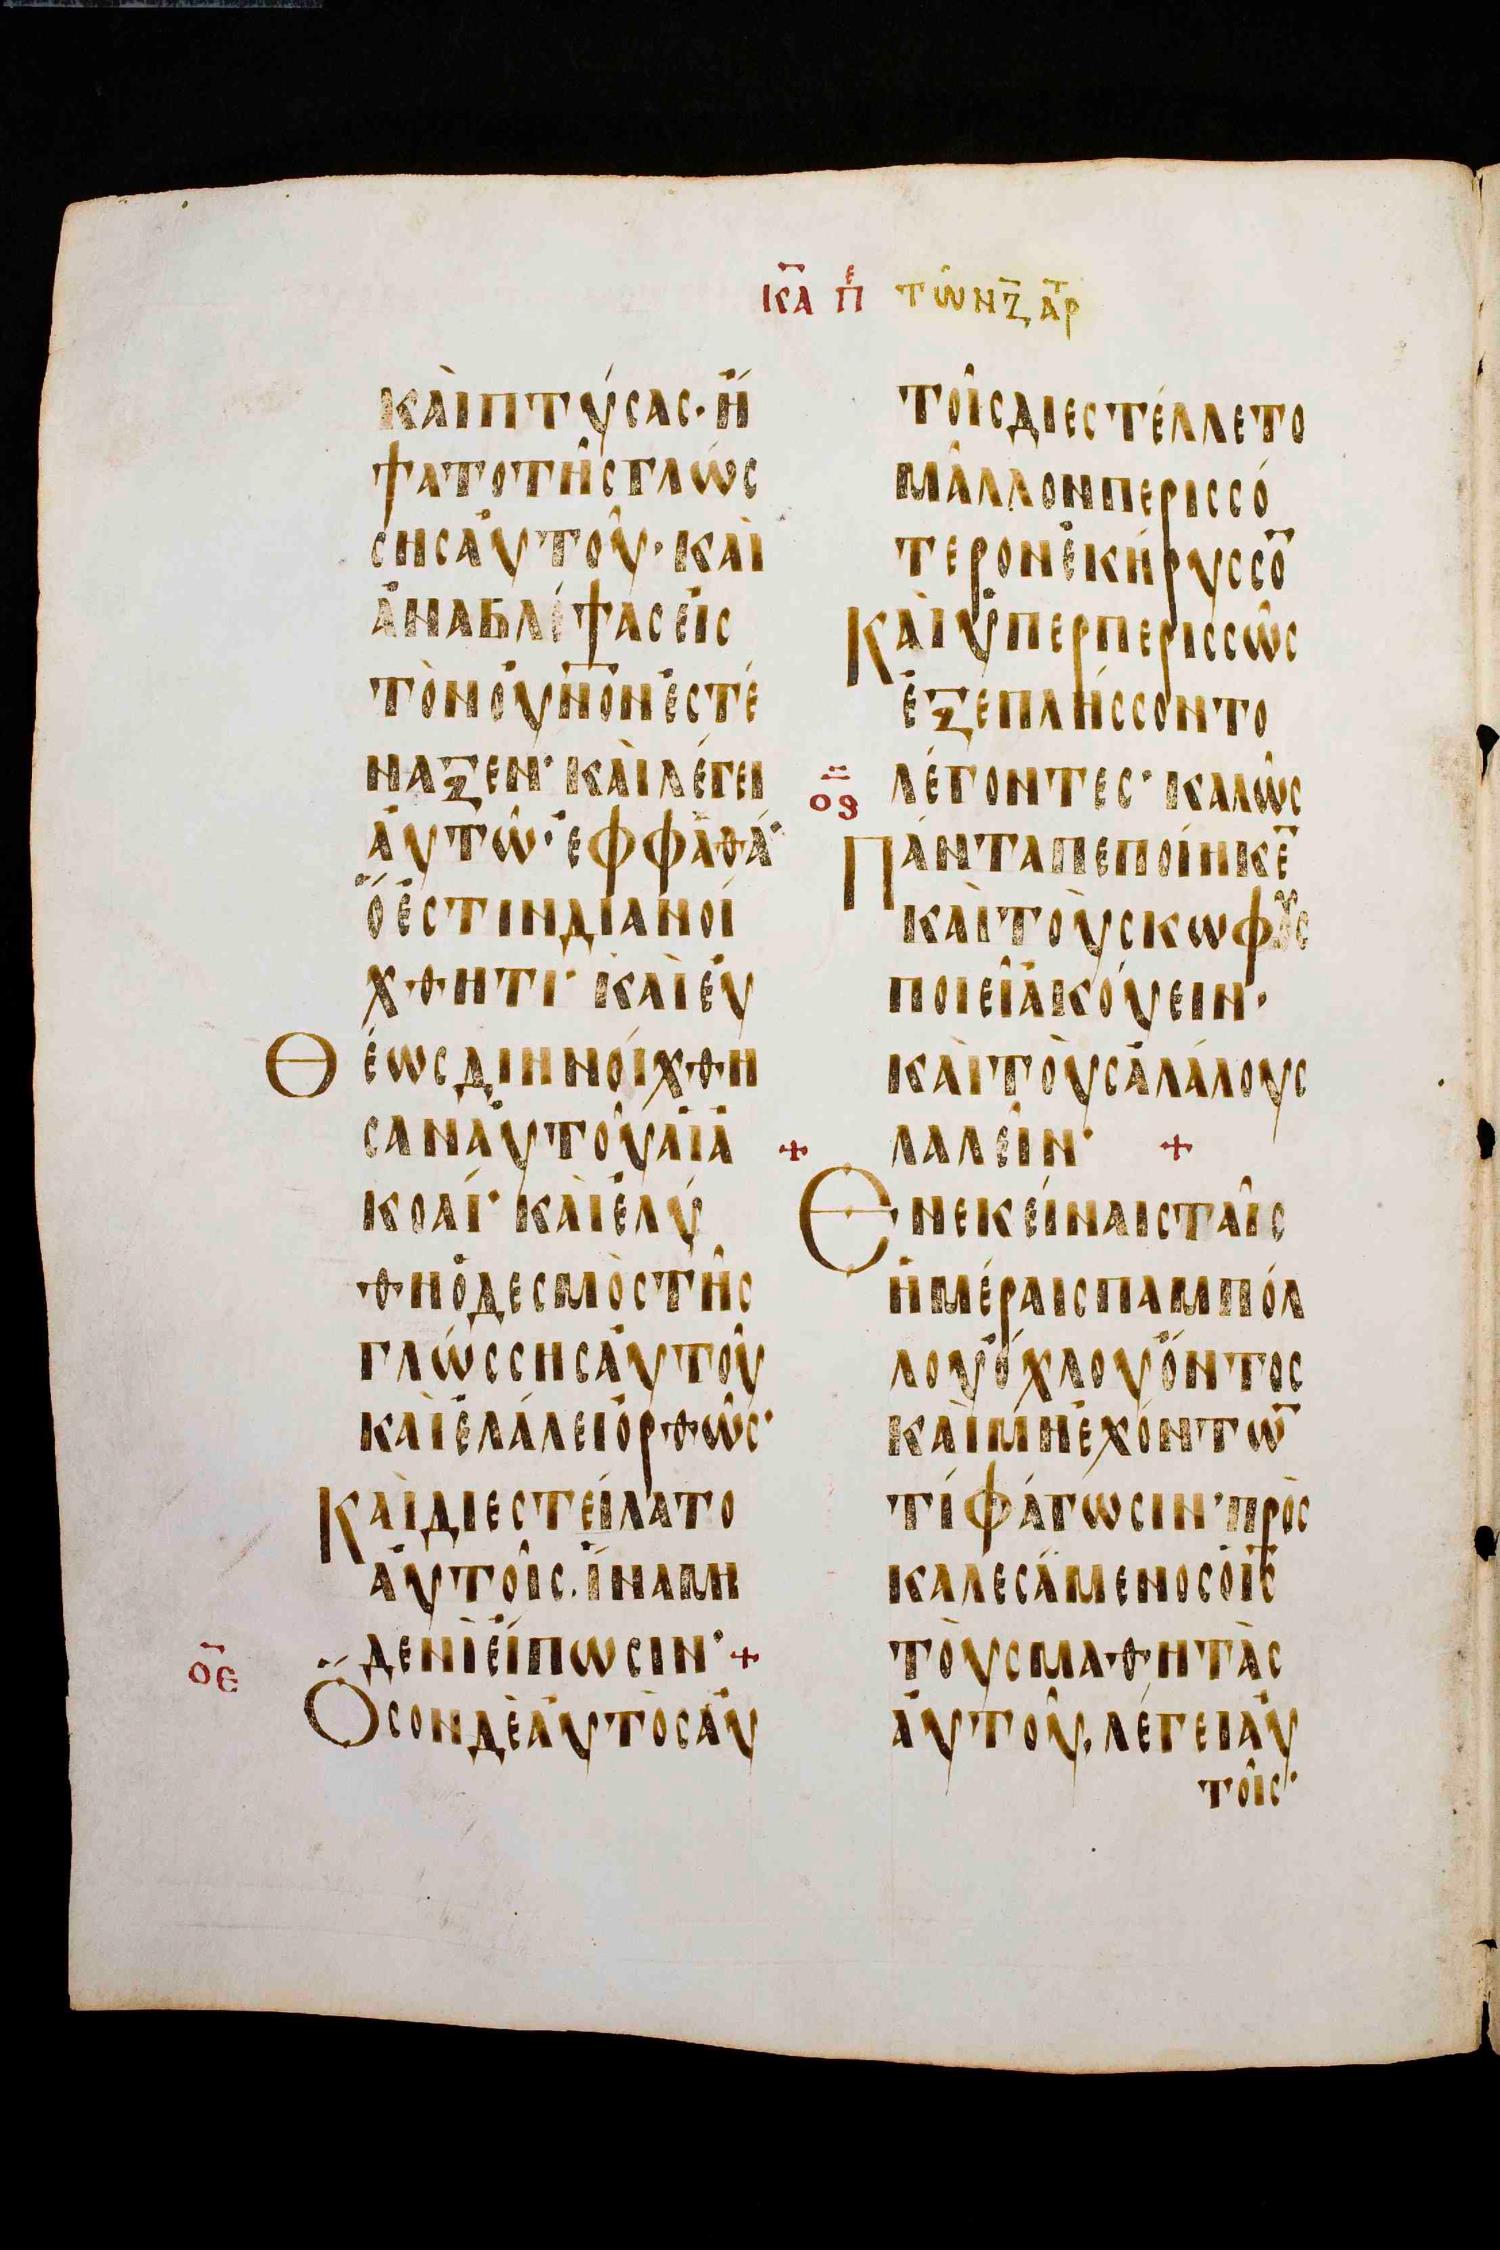 κ̅α̅ π̅ε τῶν ζ̅ α̅ρ̅τ̅
καὶ πτύσας· ἥ
ψατο τῆς γλώσ
σης ἀυτοῦ· καὶ
ἀναβλέψας εἰς
τὸν οὐ̅ν̅ο̅ν ἐστέ
ναξεν· καὶ λέγει
ἀυτῶ· ἐφφαθά·
ὅ ἐστιν διανοί
χθητι· καὶ εὐ
θέως διηνοίχθη
σαν ἀυτοῦ αἱ ἀ
κοαί· καὶ ἐλύ
θη ὁ δεσμὸς τῆς
γλώσσης ἀυτοῦ
καὶ ἐλάλει ὀρθῶς·
Καὶ διεστείλατο
ἀυτοῖς. ἵνα μη
δενὶ εἴπωσιν· +
ο̅ε̅
Ὅσον δὲ ἀυτὸς ἀυ
τοῖς διεστέλλετο
μᾶλλον περισσό
τερον ἐκήρυσσο̅
Καὶ ὑπερπερισσῶς
ἐξεπλήσσοντο
λέγοντες· καλῶς
ο̅ϛ̅
Πάντα πεποίηκε̅
καὶ τοὺς κωφοὺς
ποιεῖ ἀκούειν·
καὶ τοὺς ἀλάλους
+ λαλεῖν· +
Ἐν ἐκείναις ταῖς
ἡμέραις παμπόλ
λου ὄχλου ὄντος
καὶ μὴ ἐχόντω̅
τί φάγωσιν· προς
καλεσάμενος ὁ ι̅ς̅
τοὺς μαθητὰς
ἀυτοῦ, λέγει ἀυ
τοῖς·